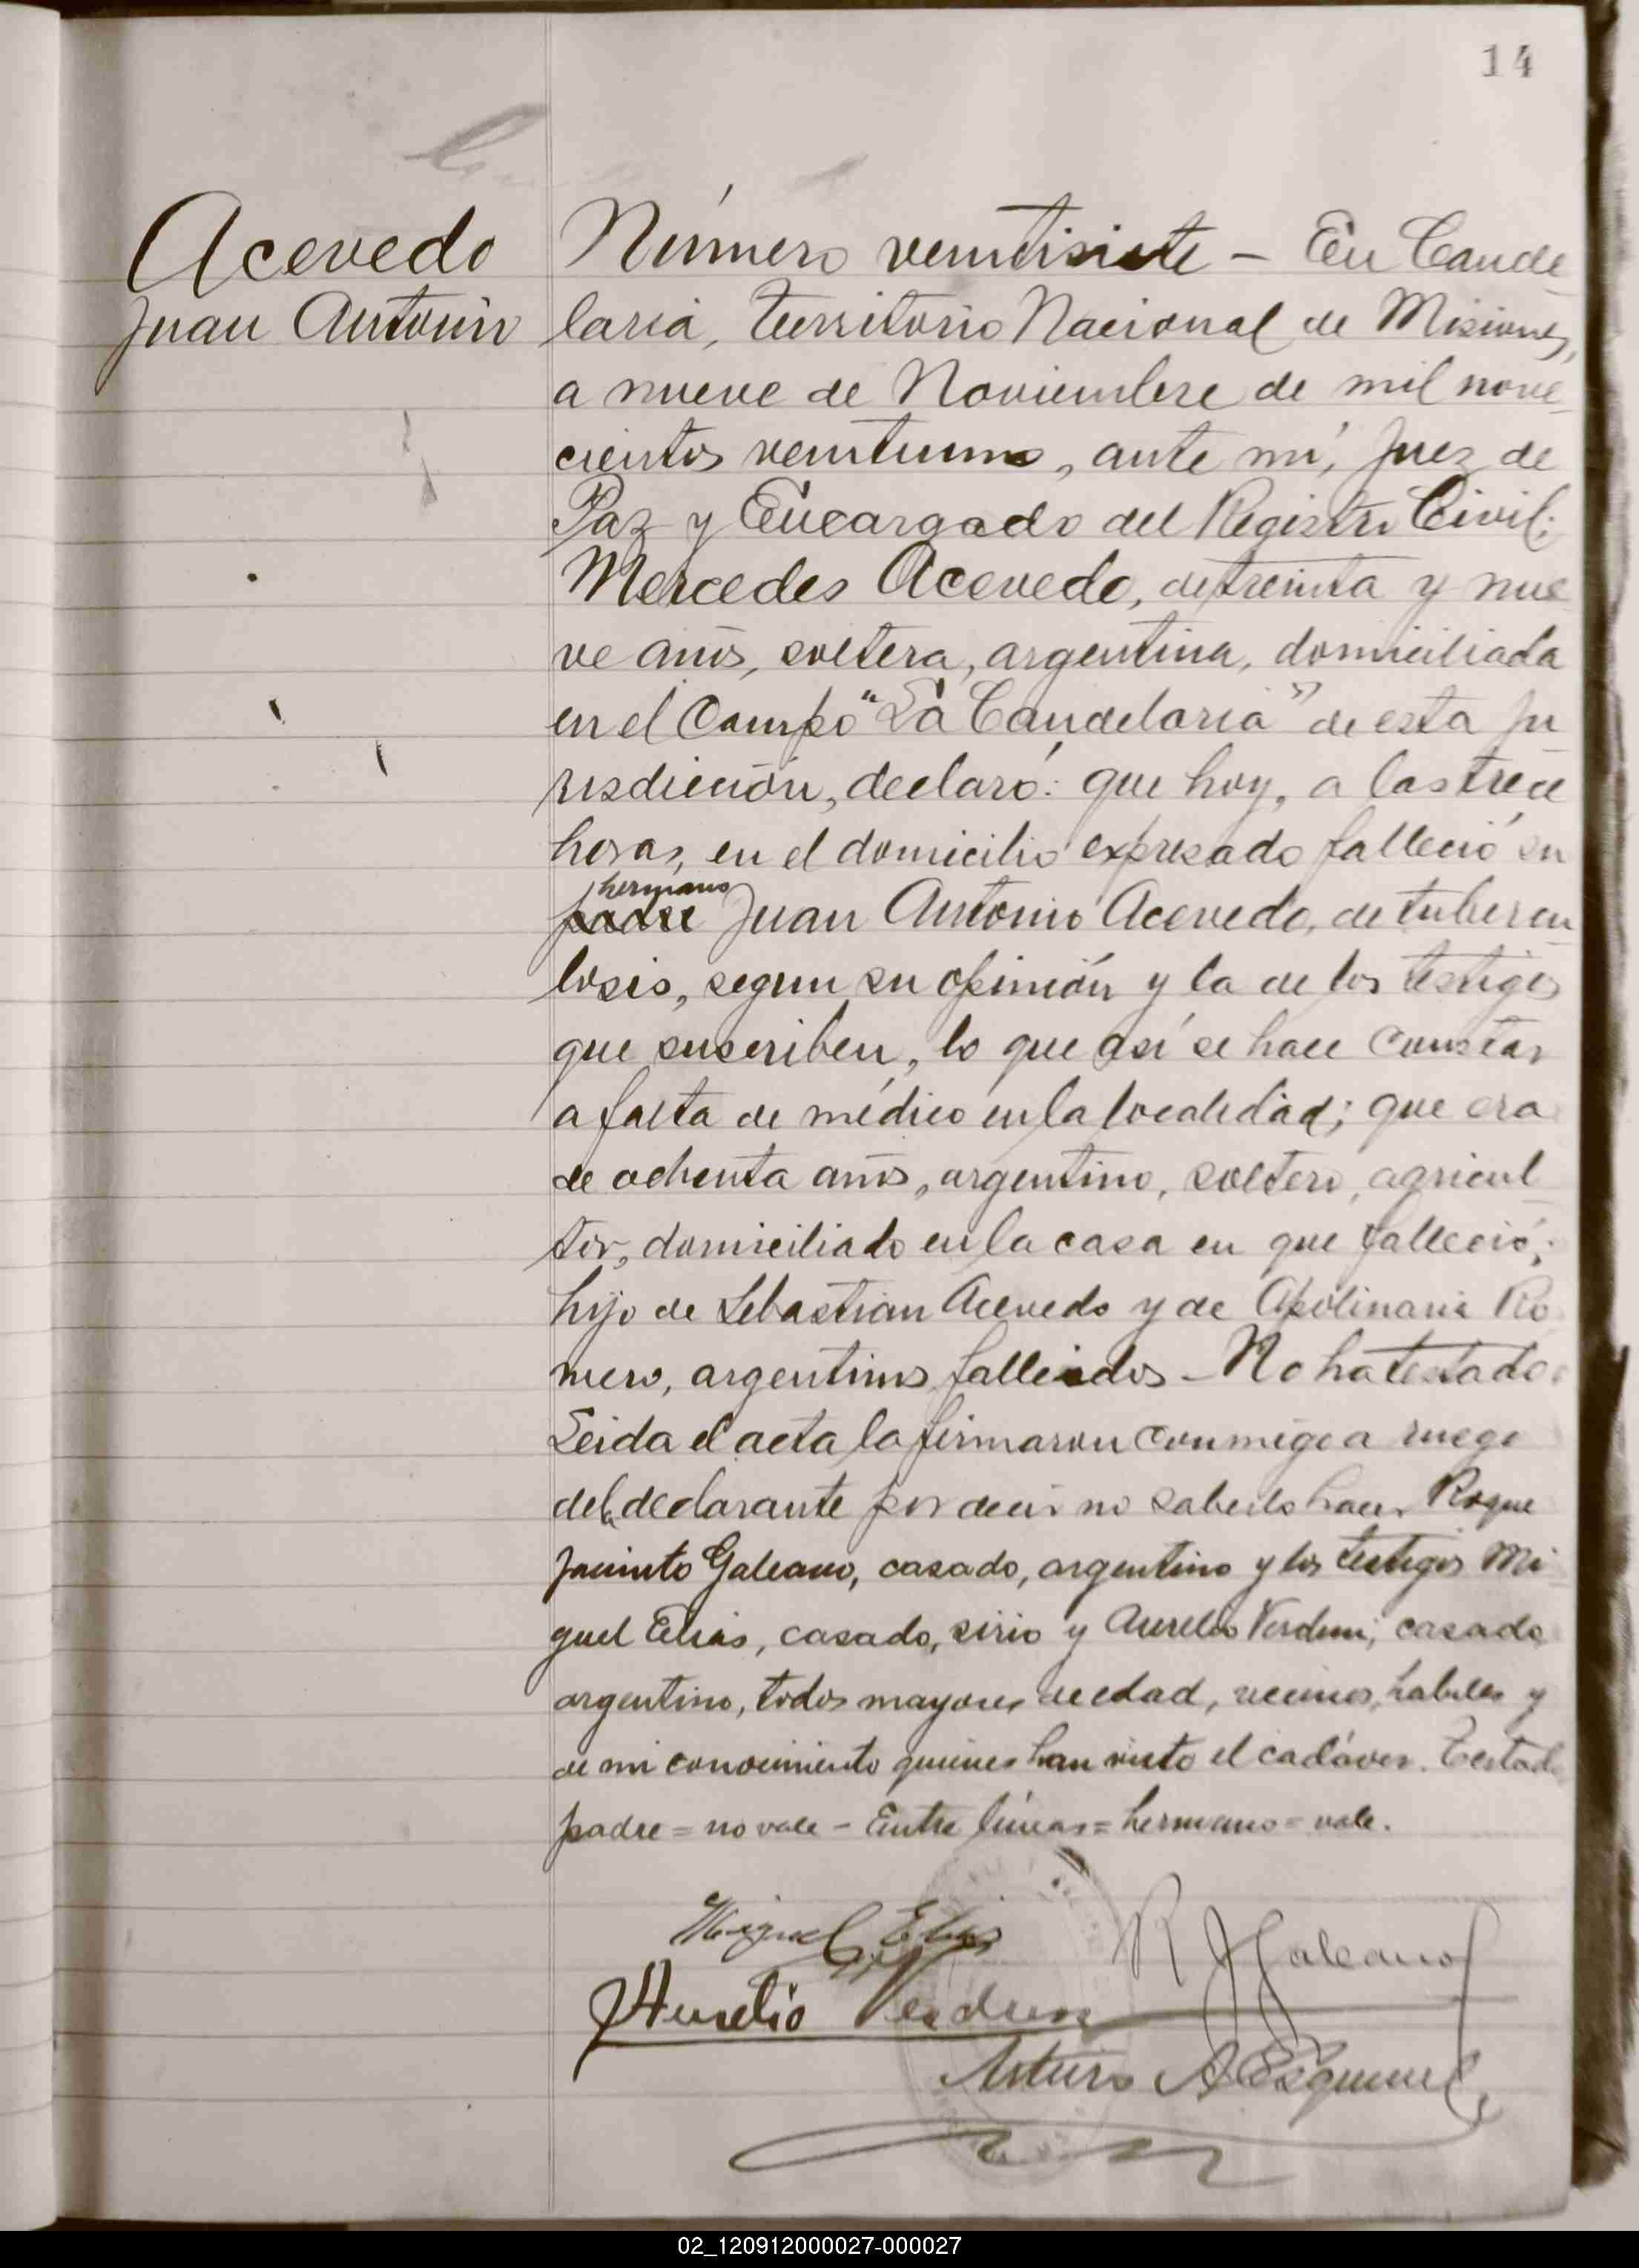 14
Acevedo
Juan Antonio
Número veintisiete - En Cande
laria, Territorio Nacional de Misiones,
a nueve de Noviembre de mil nove
cientos veintiuno, ante mí, Juez de
Paz y Encargado del Registro Civil:
Mercedes Acevedo, de treinta y nue
ve años, soltera, argentina, domiciliada
en el Campo "La Candelaria" de esta ju
risdicción, declaró: que hoy, a las trece
horas, en el domicilio expresado falleció su
hermano
padre Juan Antonio Acevedo, de tubercu
losis, segun su opinión y la de los testigos
que suscriben, lo que así se hace constar
a falta de médico en la localidad; que era
de ochenta años, argentino, soltero, agricul
tor, domiciliado en la casa en que falleció;
hijo de Sebastian Acevedo y de Apolinaria Ro
mero, argentinos fallecidos - No ha testado.
Leida el acta la firmaron conmigo a ruego
de la declarante por decir no saberlo hacer Roque
Jacinto Galeano, casado, argentino y los testigos Mi
guel Elias, casado, sirio y Aurelio Verdun, casado
argentino, todos mayores de edad, vecinos, habiles y
de mi conocimiento quienes han visto el cadáver. Testado
padre = no vale - Entre líneas = hermano = vale.
Miguel Elias
R J Galeano
Aurelio Verdun
Arturo A
02_120912000027-000027